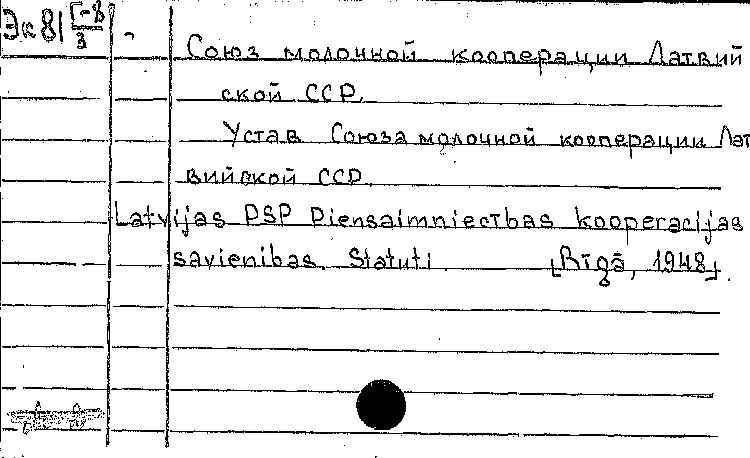 Эк 81 [-8
3
Союз молочной кооперации Латвий
ской ССР.
Устав Союза молочной кооперации Лат
вийской ССР.
Latvijas PSP Piensaimniecības kooperacijas
savienibas. Statuti [Rīgā, 1948].